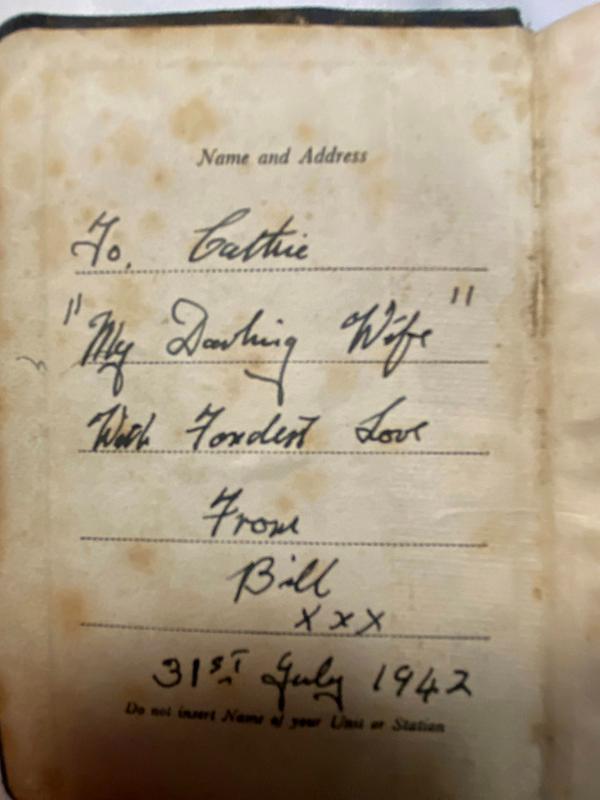 Name and Address
To. Cathie
"My Darling Wife"
With Fondest Love
From
Bill
x x x
31ST July 1942
Do not insert Name of your Unit or Station